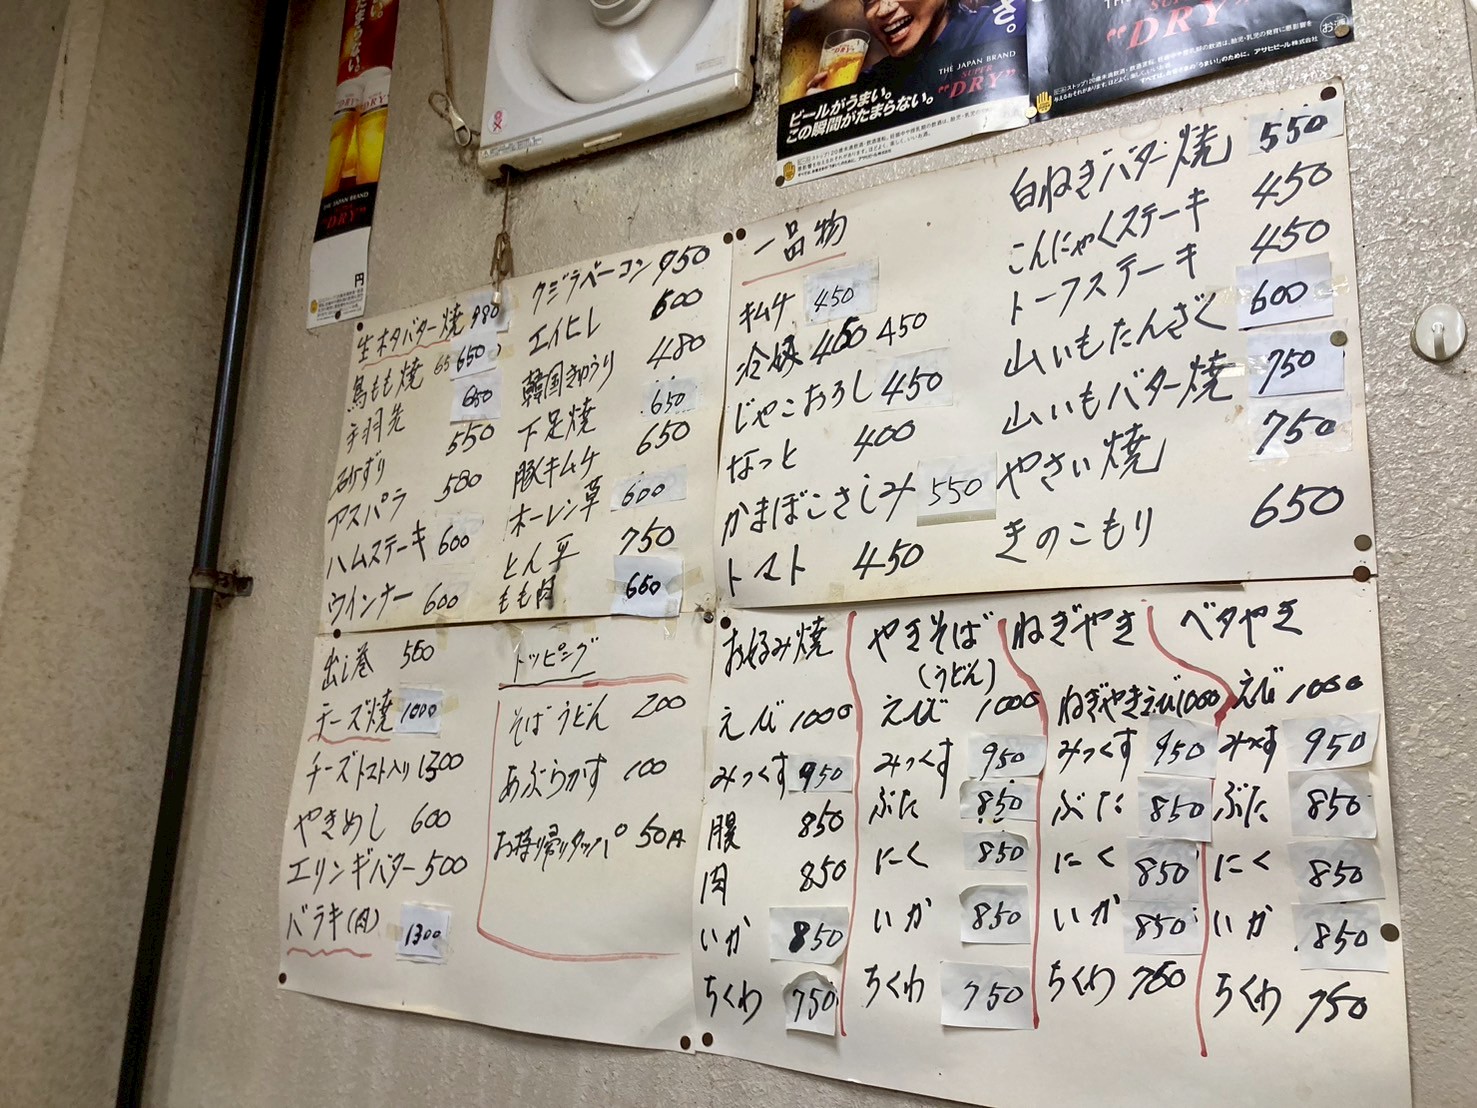 THE JAPAN BRAND
"DRY"
円
さ。
THE JAPAN BRAND
SUPER
"DRY"
ビールがうまい。
この瞬間がたまらない。
"DRY"
アサヒビール株式会社
お酒
生ホタバター焼 980
鳥もも焼 650
手羽先 650
砂ずり 550
アスパラ 580
ハムステーキ 600
ウインナー 600
クジラベーコン 950
エイヒレ 600
韓国きゅうり 480
下足焼 650
豚キムチ 650
ホーレン草 600
とん平 750
もも肉 650
一品物
キムチ 450
冷奴 450 450
じゃこおろし 450
なっと 400
かまぼこさしみ 550
トマト 450
白ねぎバター焼 550
こんにゃくステーキ 450
トーフステーキ 450
山いもたんざく 600
山いもバター焼 750
やさい焼 750
きのこもり 650
出し巻 550
チーズ焼 1000
チーズトマト入り 1300
やきめし 600
エリンギバター 500
バラキ(肉) 1300
トッピング
そばうどん 200
あぶらかす 100
お持り帰りタッパ 50円
お好み焼
えび 1000
みっくす 950
豚 850
肉 850
いか 850
ちくわ 750
やきそば
(うどん)
えび 1000
みっくす 950
ぶた 850
にく 850
いか 850
ちくわ 750
ねぎやき
ねぎやきえび 1000
みっくす 950
ぶた 850
にく 850
いか 850
ちくわ 750
ベタやき
えび 1000
みっくす 950
ぶた 850
にく 850
いか 850
ちくわ 750